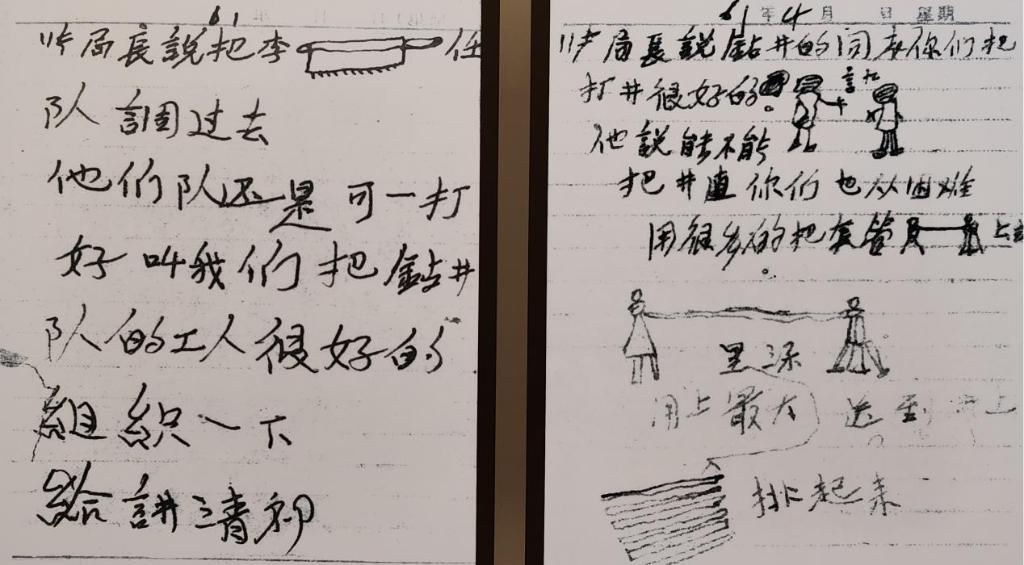 61
局長説把李 任
队調过去
他们队还是可一打
好叫我们把鉆井
队的工人很好的
組織一下
給講清初
61年4月 日 星期
局長説鉆井的同志你们把
打井很好的。
他説能不能
把井直你们也从困难
用很多的把套管 上
里深
用上最大 送到井上
排起来